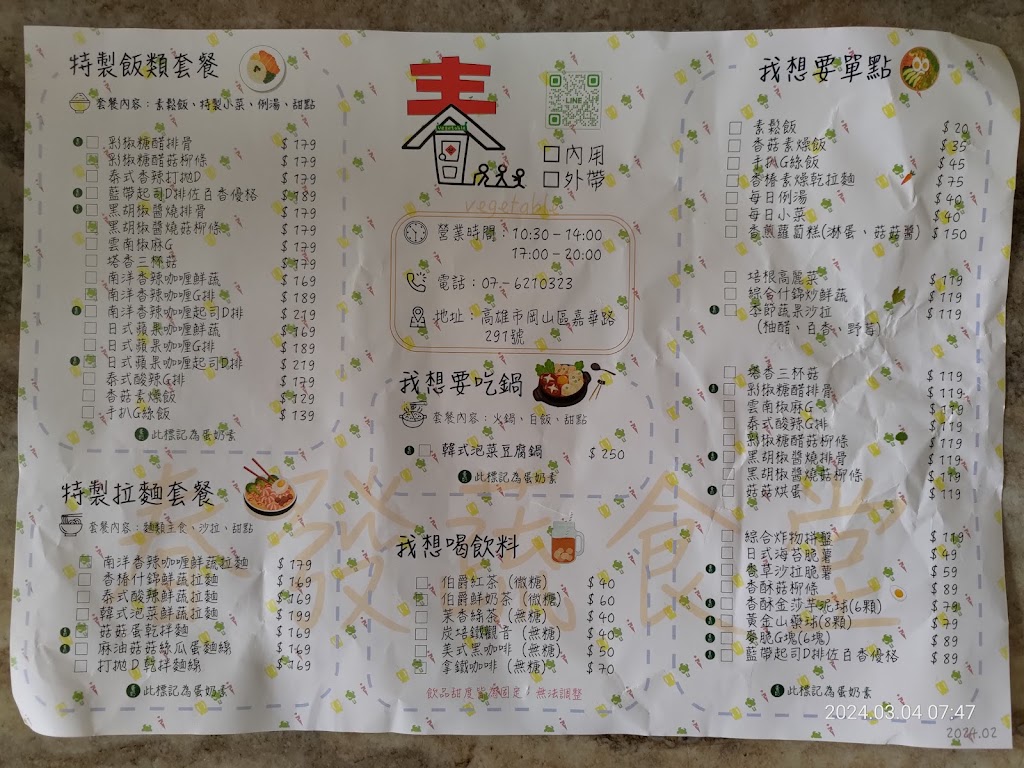 特製飯類套餐
套餐內容：素鬆飯、特製小菜、例湯、甜點
彩椒糖醋排骨 $179
彩椒糖醋菇柳條 $179
泰式香辣打拋D $179
藍帶起司D排佐百香優格 $189
黑胡椒醬燒排骨 $179
黑胡椒醬燒菇柳條 $179
雲南椒麻G $179
塔香三杯菇 $179
南洋香辣咖喱鮮蔬 $169
南洋香辣咖喱G排 $189
南洋香辣咖喱起司D排 $219
日式蘋果咖喱鮮蔬 $169
日式蘋果咖喱G排 $189
日式蘋果咖喱起司D排 $219
泰式酸辣G排 $179
香菇素燥飯 $129
手扒G絲飯 $139
此標記為蛋奶素
特製拉麵套餐
套餐內容：麵類主食、沙拉、甜點
南洋香辣咖喱鮮蔬拉麵 $179
香椿什錦鮮蔬拉麵 $169
泰式酸辣鮮蔬拉麵 $169
韓式泡菜鮮蔬拉麵 $199
菇菇蛋乾拌麵 $169
麻油菇菇絲瓜蛋麵線 $169
打拋D乾拌麵線 $169
此標記為蛋奶素
VEGETABLE
LINE
內用
外帶
vegetable
營業時間 10:30-14:00
17:00-20:00
電話：07-6210323
地址：高雄市岡山區嘉華路
291號
我想要吃鍋
套餐內容：火鍋、白飯、甜點
韓式泡菜豆腐鍋 $250
此標記為蛋奶素
發蔬食堂
我想喝飲料
伯爵紅茶（微糖） $40
伯爵鮮奶茶（微糖） $60
茉香綠茶（無糖） $40
炭焙鐵觀音（無糖） $40
美式黑咖啡（無糖） $50
拿鐵咖啡（無糖） $70
飲品甜度皆為固定，無法調整
我想要單點
素鬆飯 $20
香菇素燥飯 $35
手扒G絲飯 $45
香椿素燥乾拉麵 $75
每日例湯 $40
每日小菜 $40
香煎蘿蔔糕(淋蛋、菇菇醬) $150
培根高麗菜 $119
綜合什錦炒鮮蔬 $119
季節蔬果沙拉 $119
(柚醋、百香、野莓)
塔香三杯菇 $119
彩椒糖醋排骨 $119
雲南椒麻G $119
泰式酸辣G排 $119
彩椒糖醋菇柳條 $119
黑胡椒醬燒排骨 $119
黑胡椒醬燒菇柳條 $119
菇菇烘蛋 $119
綜合炸物拼盤 $119
日式海苔脆薯 $49
香草沙拉脆薯 $59
香酥菇柳條 $89
香酥金莎芋泥球(6顆) $79
黃金山藥球(8顆) $79
麥脆G塊(6塊) $89
藍帶起司D排佐百香優格 $89
此標記為蛋奶素
2024.03.04 07:47
2024.02